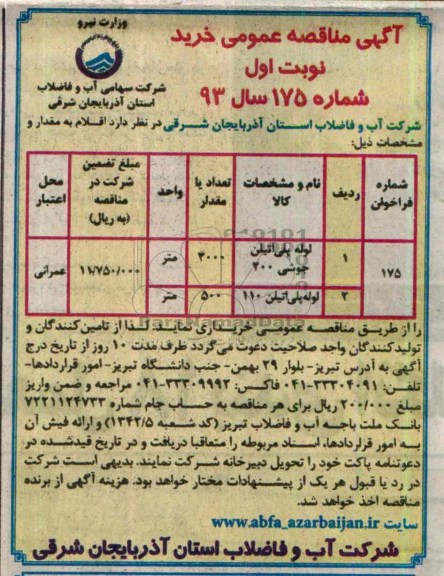 آگهی مناقصه عمومی خرید
نوبت اول
شماره ۱۷۵ سال ۹۳
وزارت نیرو
شرکت سهامی آب و فاضلاب
استان آذربایجان شرقی
شرکت آب و فاضلاب استان آذربایجان شرقی در نظر دارد اقلام به مقدار و
مشخصات ذیل:
شماره فراخوان ردیف نام و مشخصات کالا تعداد یا مقدار واحد مبلغ تضمین شرکت در مناقصه (به ریال) محل اعتبار
۱۷۵ ۱ لوله پلی‌اتیلن جوشی ۲۰۰ ۳۰۰۰ متر ۱۱/۷۵۰/۰۰۰ عمرانی
۲ لوله‌پلی‌اتیلن ۱۱۰ ۵۰۰ متر
را از طریق مناقصه عمومی خریداری نماید. لذا از تامین‌کنندگان و
تولیدکنندگان واجد صلاحیت دعوت می‌گردد ظرف مدت ۱۰ روز از تاریخ درج
آگهی به آدرس تبریز- بلوار ۲۹ بهمن- جنب دانشگاه تبریز- امور قراردادها-
تلفن: ۳۳۳۰۴۰۹۱-۰۴۱ فاکس: ۳۳۳۰۹۹۹۲-۰۴۱ مراجعه و ضمن واریز
مبلغ ۲۰۰/۰۰۰ ریال برای هر مناقصه به حساب جام شماره ۷۲۲۱۱۲۴۷۳۳
بانک ملت باجه آب و فاضلاب تبریز (کد شعبه ۱۳۴۲/۵) و ارائه فیش آن
به امور قراردادها، اسناد مربوطه را متعاقبا دریافت و در تاریخ قیدشده در
دعوتنامه پاکت خود را تحویل دبیرخانه شرکت نمایند. بدیهی است شرکت
در رد یا قبول هر یک از پیشنهادات مختار خواهد بود. هزینه آگهی از برنده
مناقصه اخذ خواهد شد.
سایت www.abfa_azarbaijan.ir
شرکت آب و فاضلاب استان آذربایجان شرقی